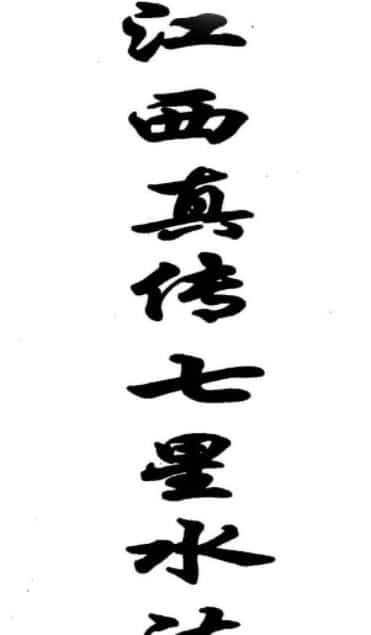 江西真传七星水